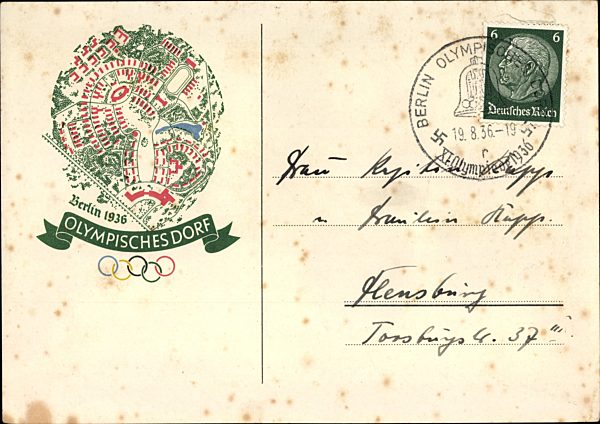 Berlin 1936
OLYMPISCHES DORF
BERLIN OLYMPISCHES
19.8.36.-19
r
XI. Olympiade 1936
6 6
Deutsches Reich
Frau
u Fräulein Kapp.
Flensburg
37 III